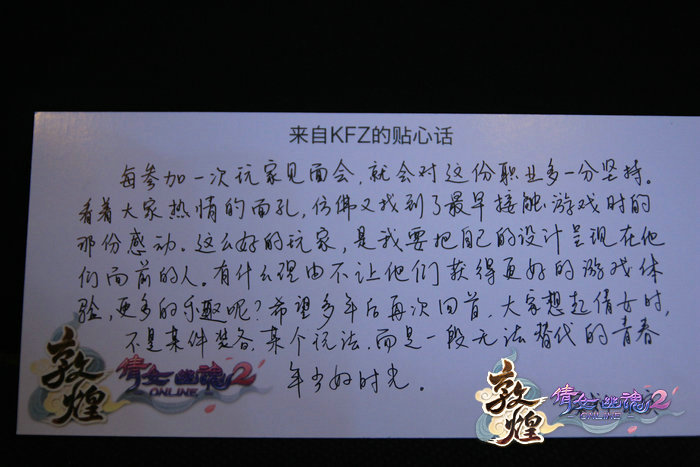 来自KFZ的贴心话
每参加一次玩家见面会，就会对这份职业多一分坚持。
看着大家热情的面孔，仿佛又找到了最早接触游戏时的
那份感动。这么好的玩家，是我要把自己的设计呈现在他
们面前的人。有什么理由不让他们获得更好的游戏体
验，更多的乐趣呢？希望多年后再次回首，大家想起倩女时，
不是某件装备、某个玩法，而是一段无法替代的青春
年少好时光。
敦煌
倩女幽魂2
ONLINE
敦煌
倩女幽魂2
ONLINE